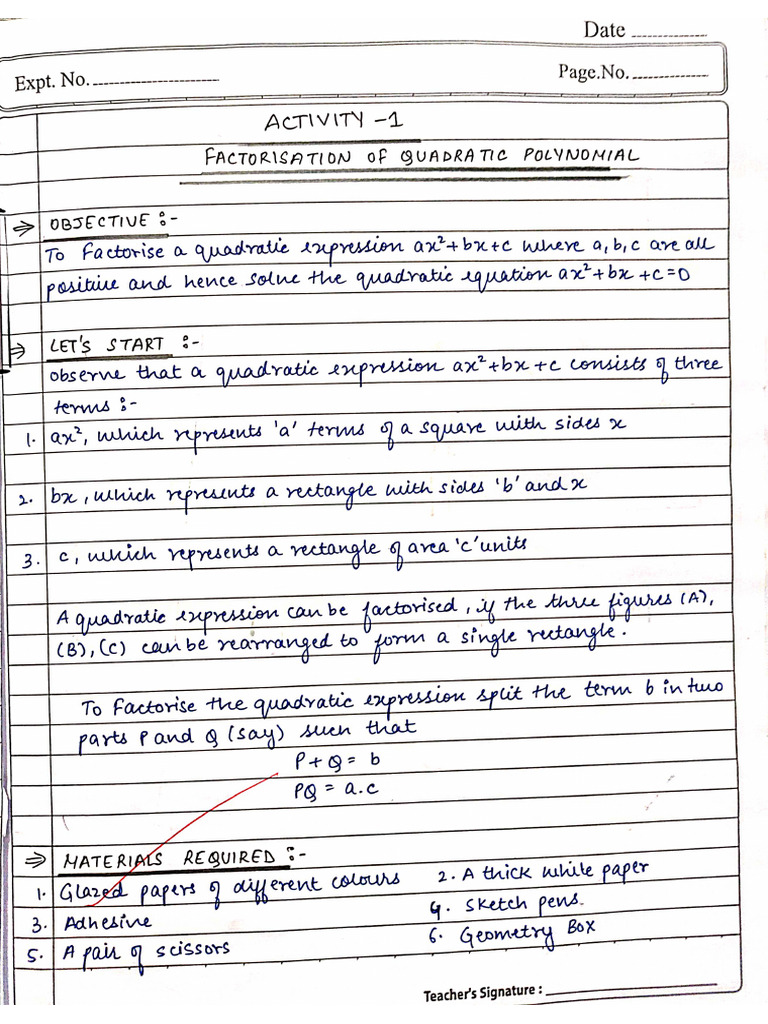 Date
Expt. No.
Page.No.
ACTIVITY -1
FACTORISATION OF QUADRATIC POLYNOMIAL
⇒ OBJECTIVE :-
To Factorise a quadratic expression ax²+bx+c where a, b, c are all
positive and hence solve the quadratic equation ax²+bx+c=0
⇒ LET'S START :-
observe that a quadratic expression ax²+bx+c consists of three
terms :-
1. ax², which represents 'a' terms of a square with sides x
2. bx, which represents a rectangle with sides 'b' and x
3. c, which represents a rectangle of area 'c' units
A quadratic expression can be factorised, if the three figures (A),
(B), (C) can be rearranged to form a single rectangle.
To Factorise the quadratic expression split the term b in two
parts P and Q (say) such that
P+Q = b
PQ = a.c
⇒ MATERIALS REQUIRED :-
1. Glazed papers of different colours 2. A thick white paper
3. Adhesive 4. Sketch pens.
5. A pair of scissors 6. Geometry Box
Teacher's Signature :